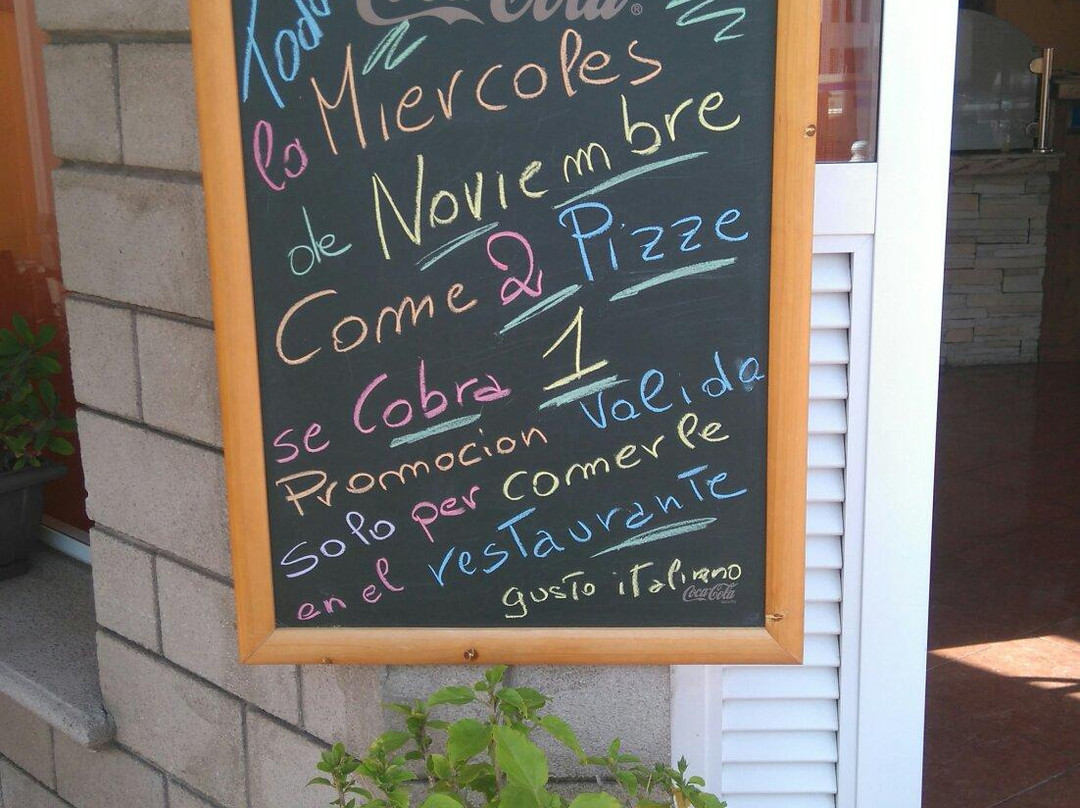 Coca-Cola®
Todo
la Miercoles
de Noviembre
Come 2 Pizze
se Cobra 1
Promocion Valida
solo per comerle
en el restaurante
gusto italiano
Coca-Cola